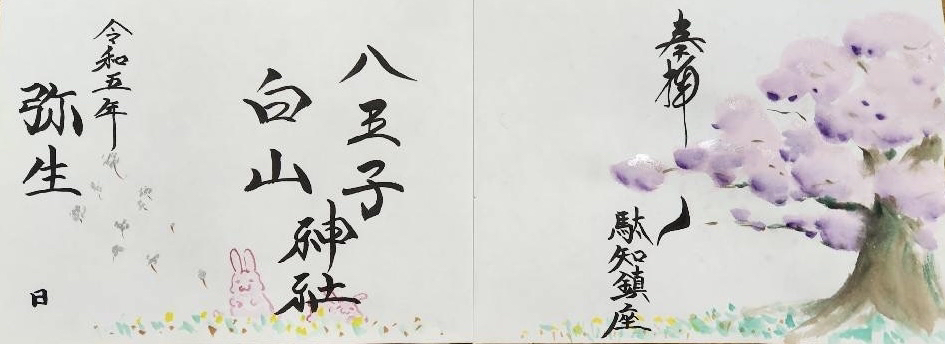 奉拝
駄知鎮座
八王子
白山
神社
令和五年
弥生
日